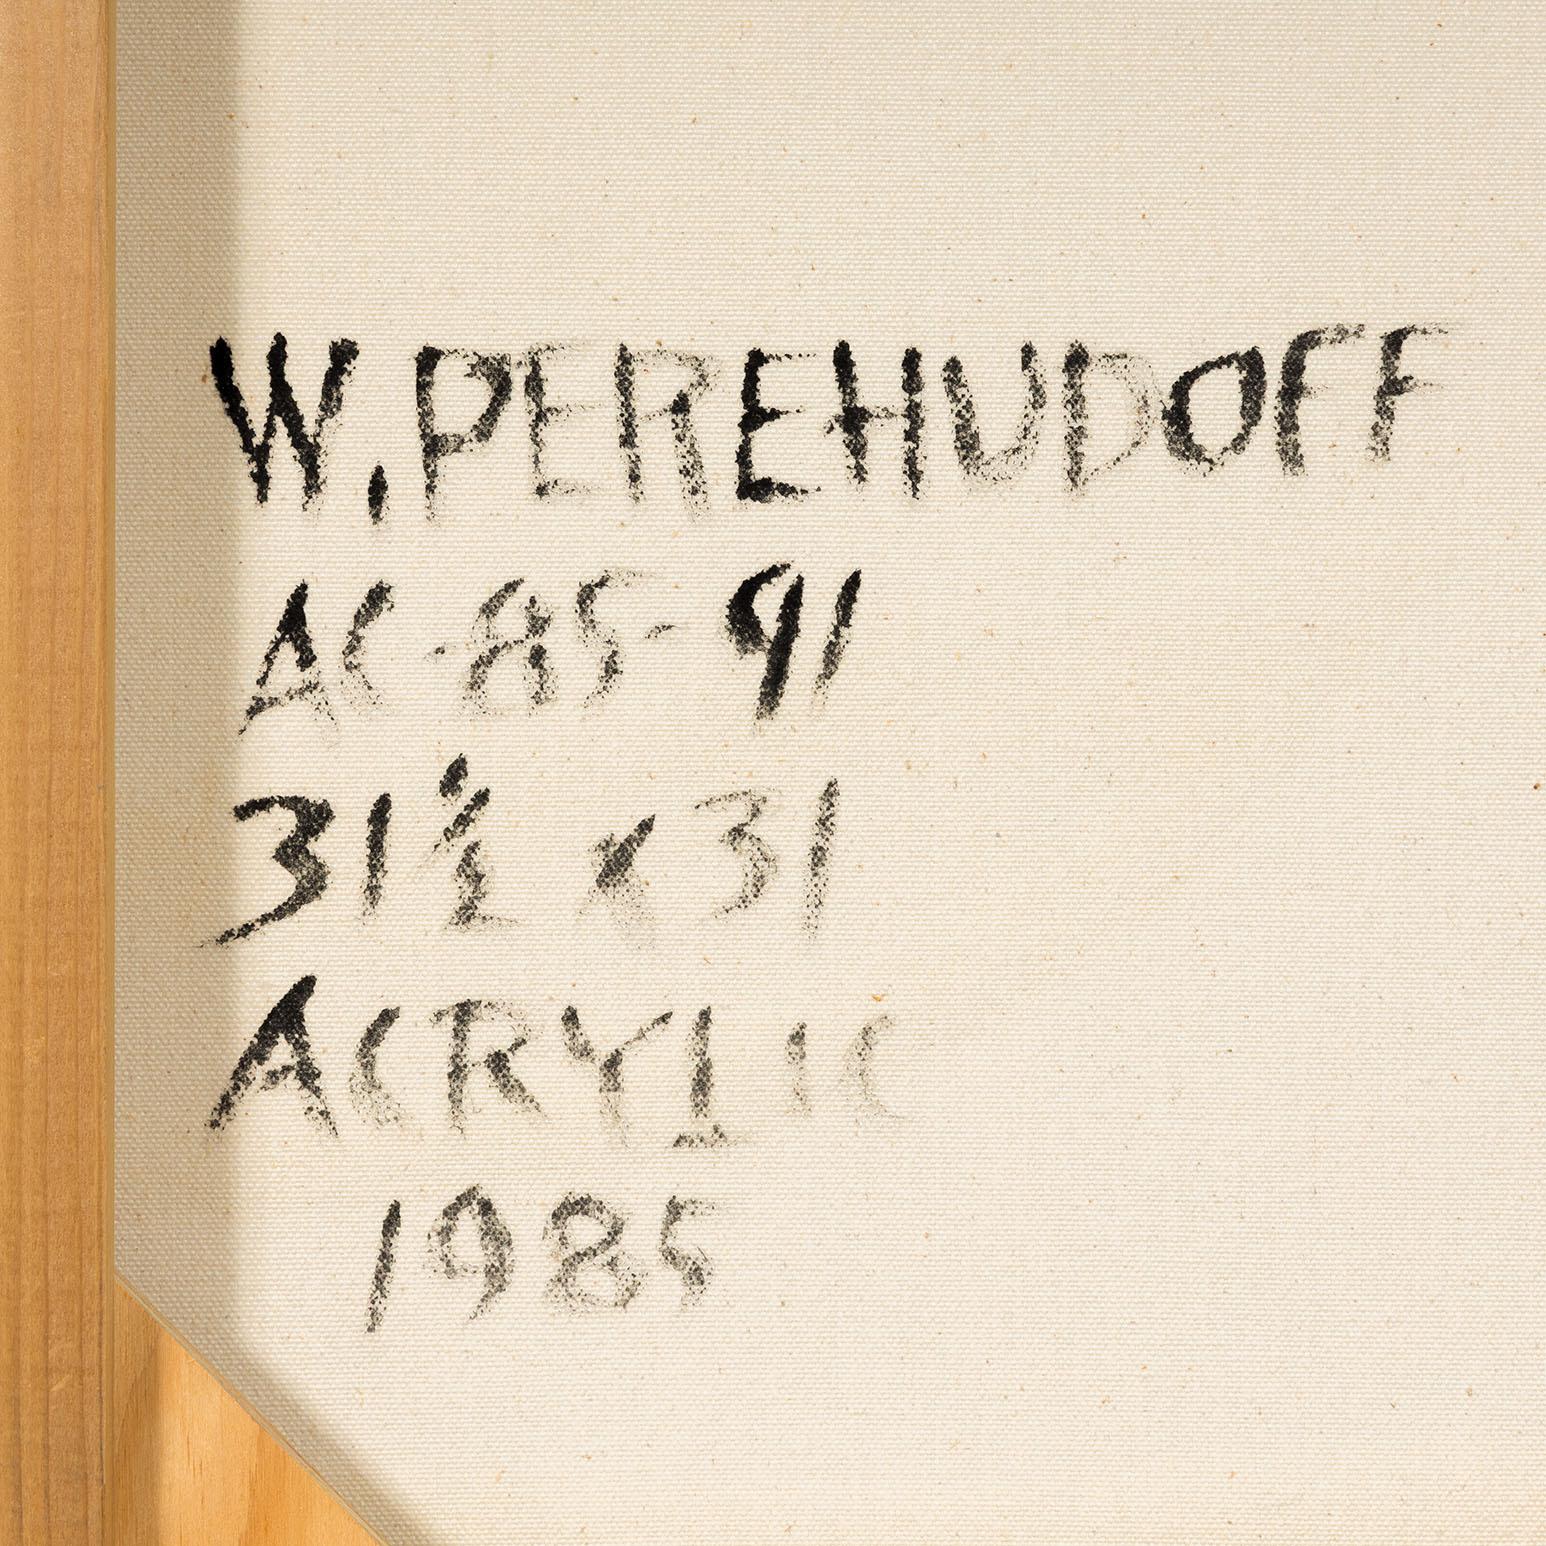 W. PEREHUDOFF
AC-85-91
31 ½ x 31
ACRYLIC
1985